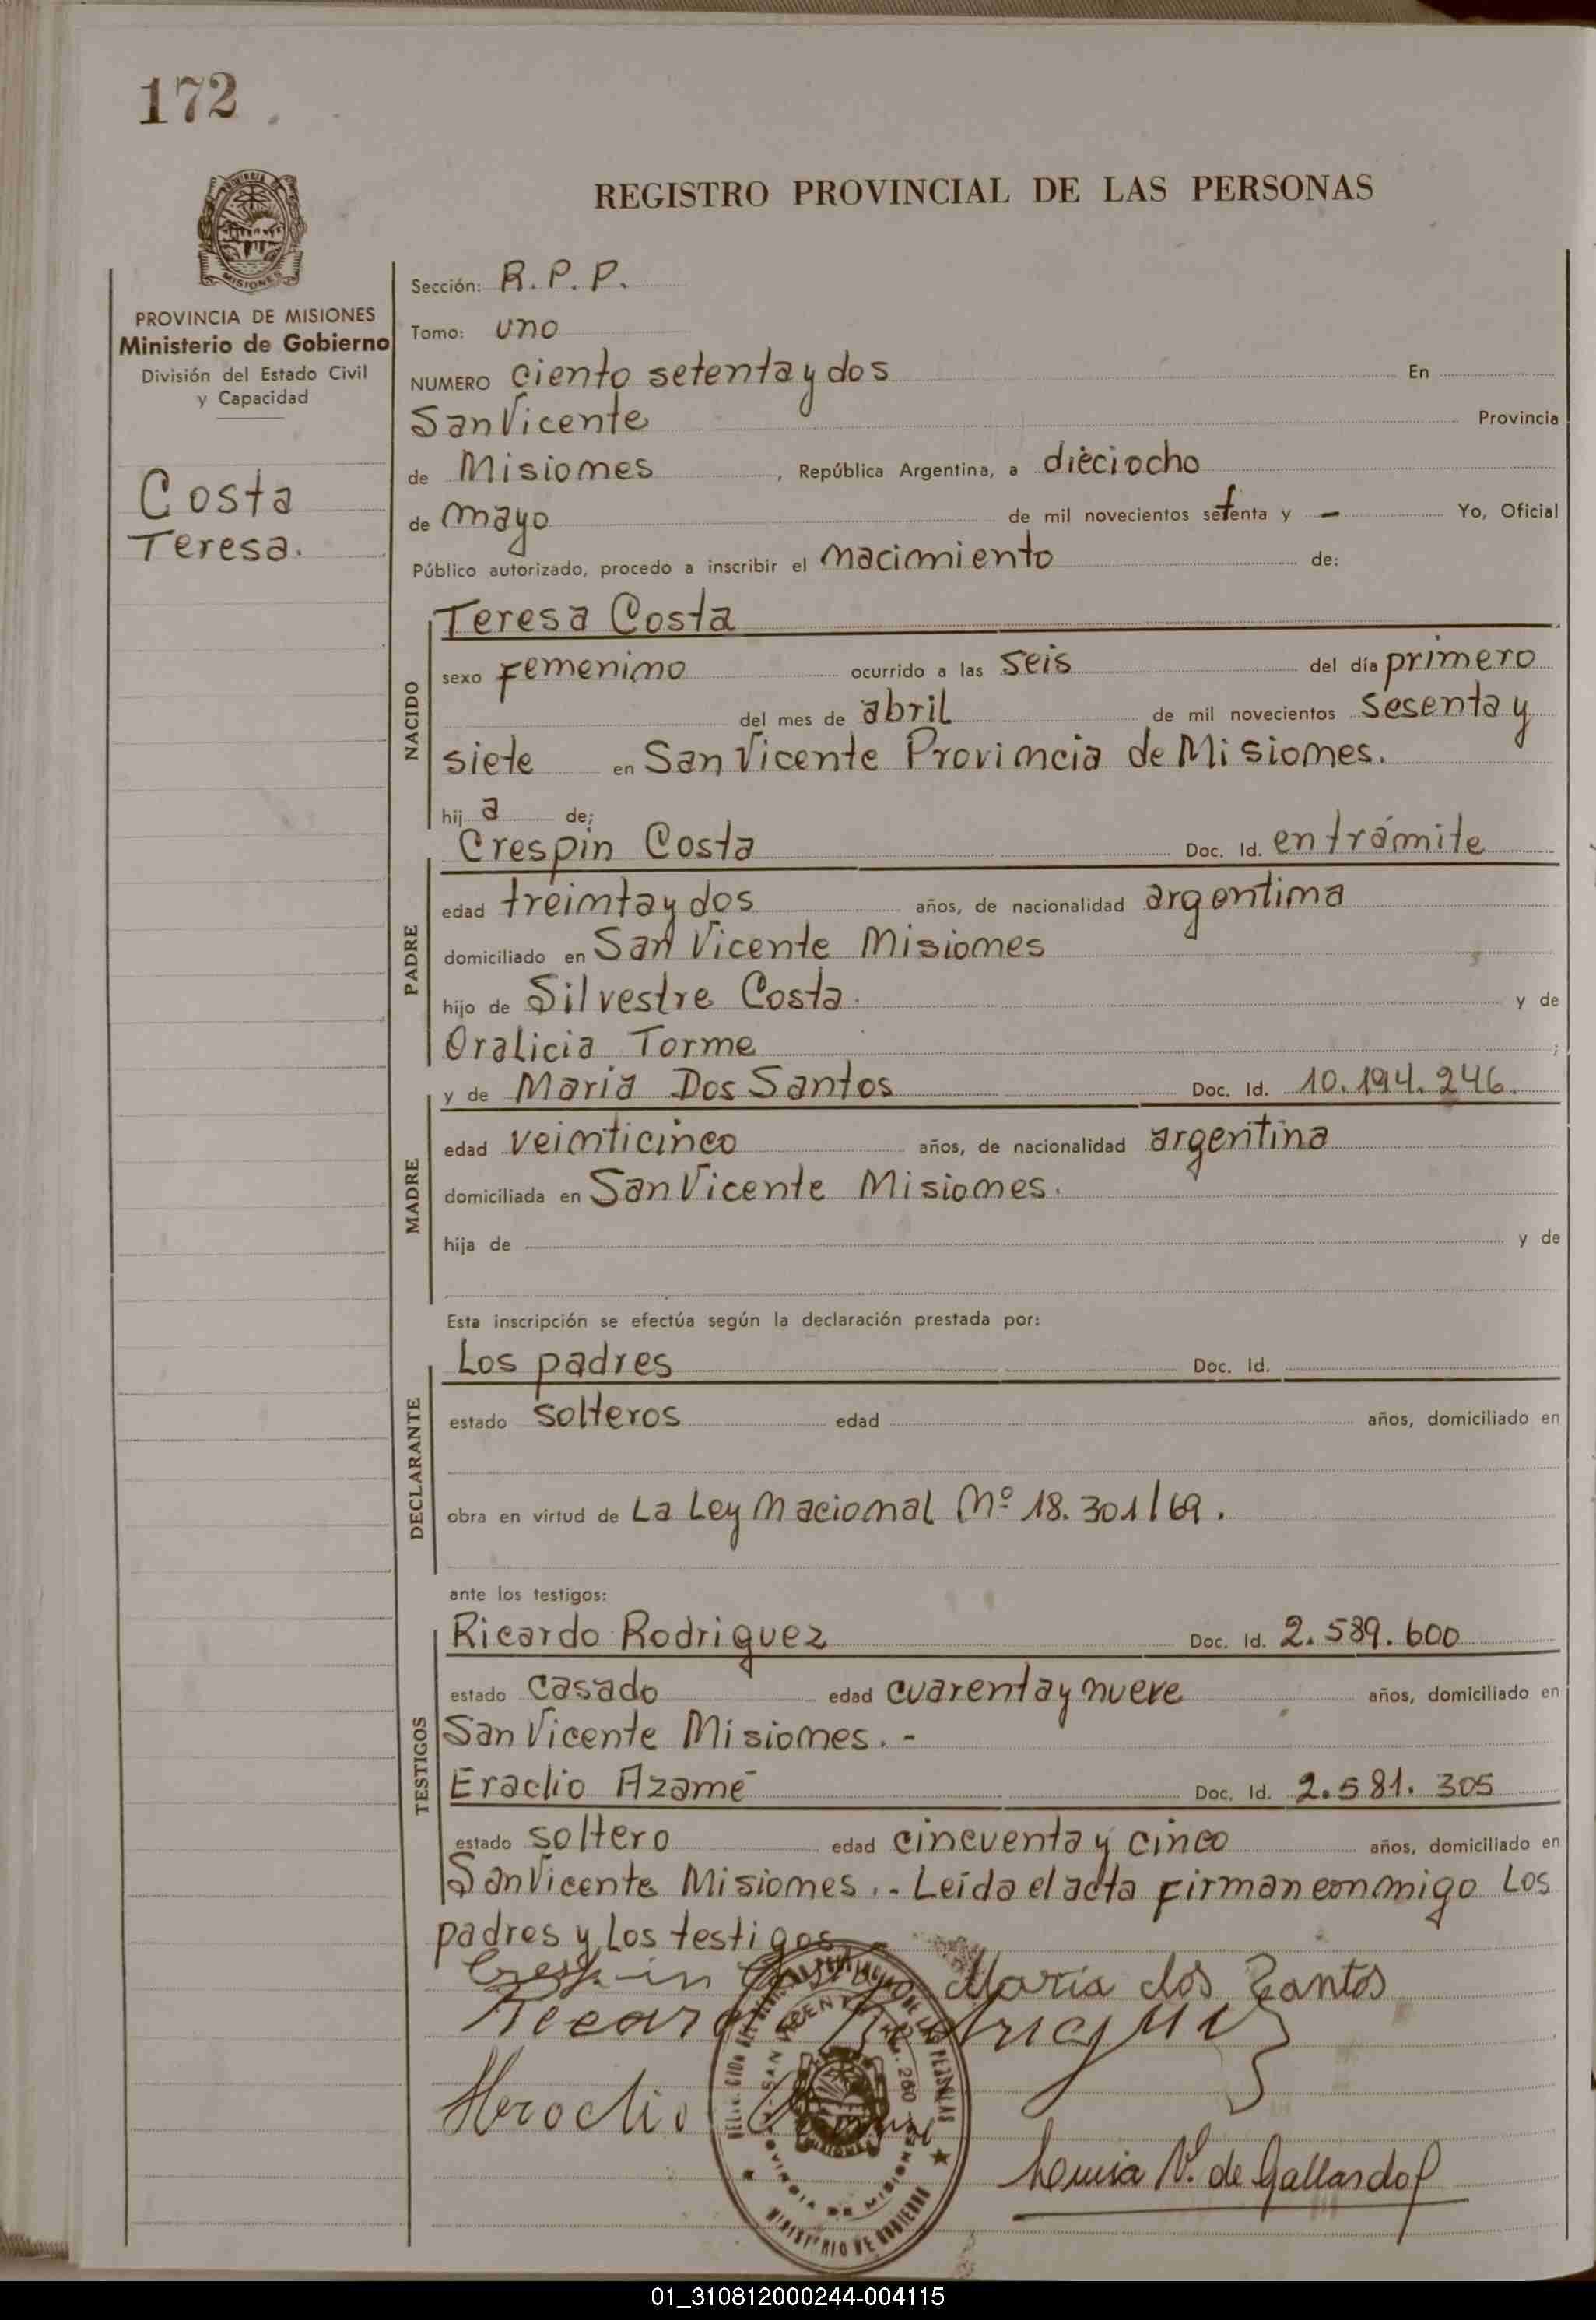 172
REGISTRO PROVINCIAL DE LAS PERSONAS
MISIONES
PROVINCIA DE MISIONES
Ministerio de Gobierno
División del Estado Civil
y Capacidad
Costa
Teresa.
Sección: R. P. P.
Tomo: uno
NUMERO ciento setenta y dos En
San Vicente Provincia
de Misiones, República Argentina, a dieciocho
de mayo de mil novecientos setenta y - Yo, Oficial
Público autorizado, procedo a inscribir el nacimiento de:
NACIDO
Teresa Costa
sexo femenino ocurrido a las seis del día primero
del mes de abril de mil novecientos sesenta y
siete en San Vicente Provincia de Misiones.
hij a de;
PADRE
Crespin Costa Doc. Id. en trámite
edad treinta y dos años, de nacionalidad argentina
domiciliado en San Vicente Misiones
hijo de Silvestre Costa. y de
Oralicia Torme ;
MADRE
y de Maria Dos Santos Doc. Id. 10.194.246.
edad veinticinco años, de nacionalidad argentina
domiciliada en San Vicente Misiones.
hija de y de
Esta inscripción se efectúa según la declaración prestada por:
DECLARANTE
Los padres Doc. Id.
estado solteros edad años, domiciliado en
obra en virtud de La Ley Nacional Nº 18.301/69.
ante los testigos:
TESTIGOS
Ricardo Rodriguez Doc. Id. 2.589.600
estado casado edad cuarenta y nueve años, domiciliado en
San Vicente Misiones. -
Eraclio Azame Doc. Id. 2.581.305
estado soltero edad cincuenta y cinco años, domiciliado en
San Vicente Misiones. - Leída el acta firman conmigo Los
padres y Los testigos
Crespin Maria dos Santos
Ricardo Rodriguez
Heraclio
SAN VICENTE
PROVINCIA DE MISIONES
MINISTERIO DE GOBIERNO
Luisa V. de Gallardo
01_310812000244-004115